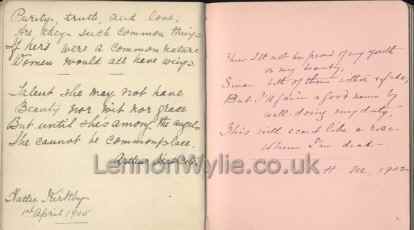 Purity, truth, and love,
Are they such common things
If hers were a common nature
Women would all have wings.
Talent she may not have
Beauty nor wit nor grace
But until she's among the angels
She cannot be commonplace.
Hattie Kirkby
1st April 1905
I'll not be proud of my youth
or my beauty
Since both of them wither & fade,
But I'll gain a good name by
well doing my duty.
This will scent like a rose
when I'm dead.
LennonWylie.co.uk